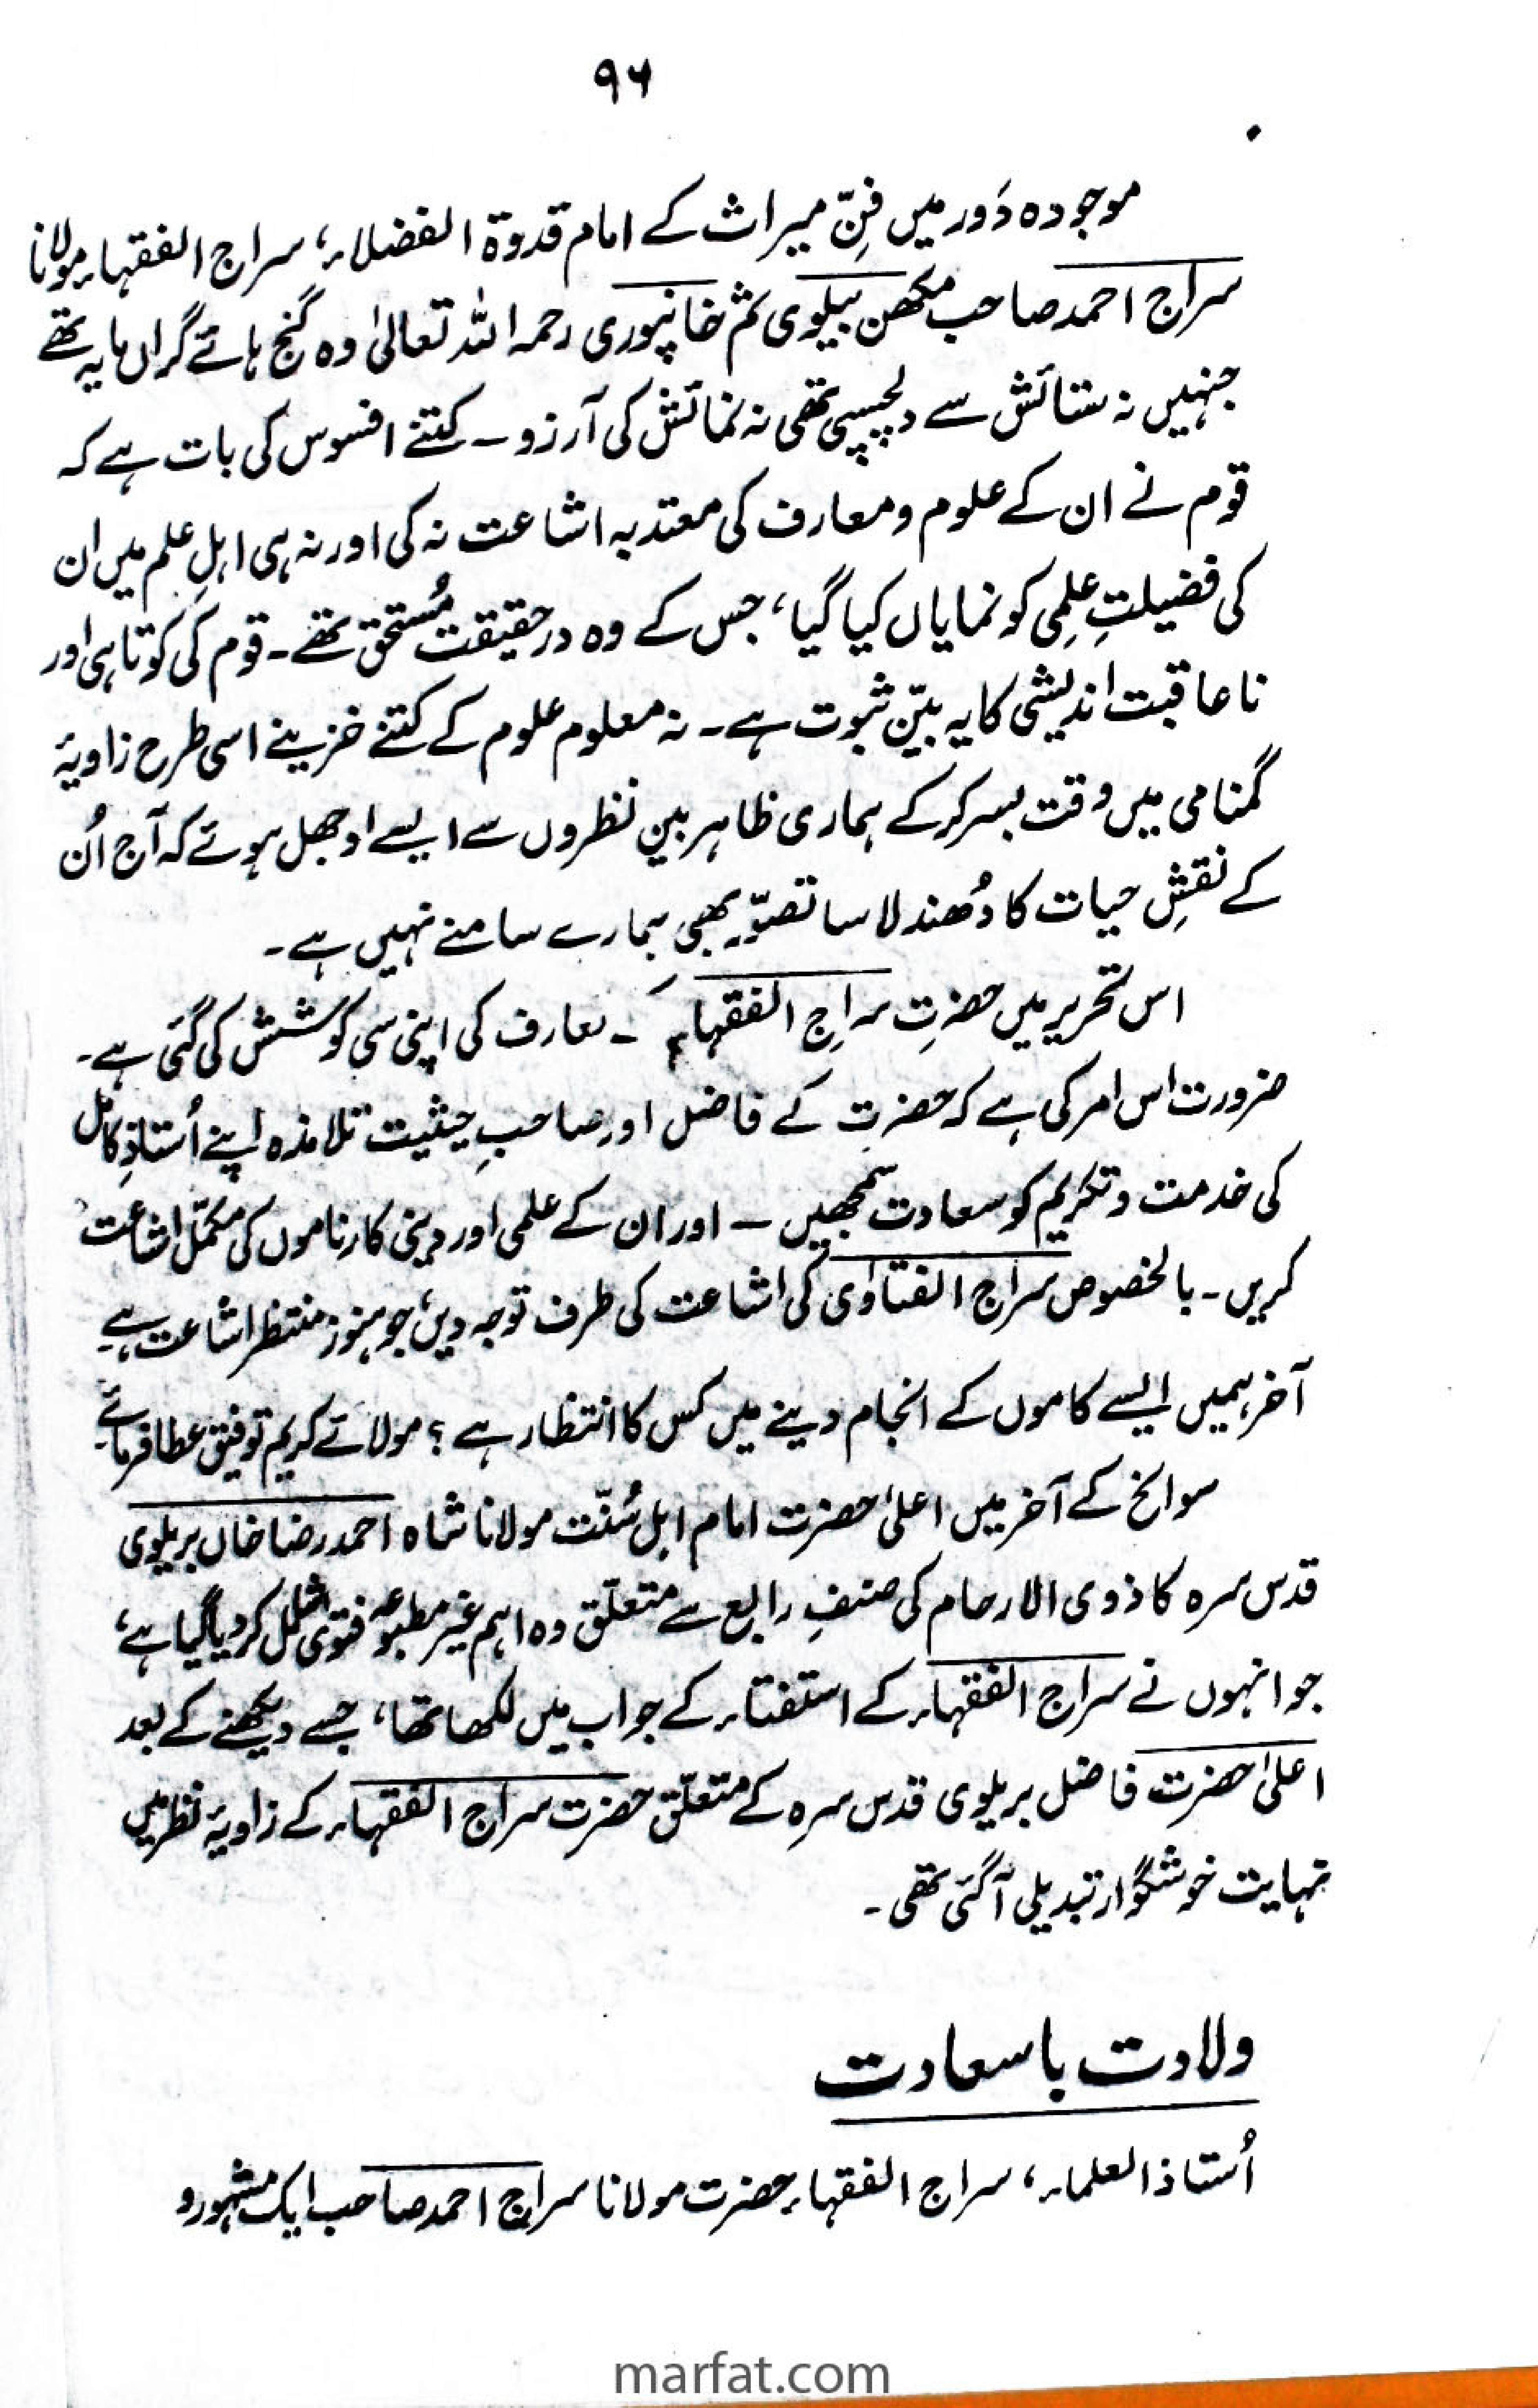 ۹۶
موجودہ دَور میں فنِّ میراث کے امام قدوۃ الفضلاء، سراج الفقہاء مولانا
سراج احمد صاحب مکھن بیلوی ثم خانپوری رحمہ اللہ تعالیٰ وہ گنج ہائے گراں مایہ تھے
جنہیں نہ ستائش سے دلچسپی تھی نہ نمائش کی آرزو ۔ کتنے افسوس کی بات ہے کہ
قوم نے ان کے علوم و معارف کی معتد بہ اشاعت نہ کی اور نہ ہی اہلِ علم میں ان
کی فضیلتِ علمی کو نمایاں کیا گیا، جس کے وہ درحقیقت مُستحق تھے ۔ قوم کی کوتاہی اور
ناعاقبت اندیشی کا یہ بیّن ثبوت ہے ۔ نہ معلوم علوم کے کتنے خزینے اسی طرح زاویۂ
گمنامی میں وقت بسر کر کے ہماری ظاہر بین نظروں سے ایسے اوجھل ہوئے کہ آج اُن
کے نقشِ حیات کا دُھندلا سا تصوّر بھی ہمارے سامنے نہیں ہے ۔
اس تحریر میں حضرتِ سراجِ الفقہاء کے تعارف کی اپنی سی کوشش کی گئی ہے ۔
ضرورت اس امر کی ہے کہ حضرت کے فاضل اور صاحبِ حیثیت تلامذہ اپنے اُستاذِ کامل
کی خدمت و تکریم کو سعادت سمجھیں ۔ اور ان کے علمی اور دینی کارناموں کی مکمّل اشاعت
کریں ۔ بالخصوص سراج الفتاوٰی کی اشاعت کی طرف توجہ دیں، جو ہنوز منتظر اشاعت ہے
آخر ہمیں ایسے کاموں کے انجام دینے میں کس کا انتظار ہے؟ مولائے کریم توفیق عطا فرمائے
سوانح کے آخر میں اعلیٰ حضرت امام اہل سُنّت مولانا شاہ احمد رضا خاں بریلوی
قدس سرہ کا ذوی الارحام کی صنفِ رابع سے متعلّق وہ اہم غیر مطبوعہ فتوٰی نقل کر دیا گیا ہے،
جو انہوں نے سراج الفقہاء کے استفتاء کے جواب میں لکھا تھا، جسے دیکھنے کے بعد
اعلیٰ حضرت فاضل بریلوی قدس سرہ کے متعلّق حضرت سراج الفقہاء کے زاویۂ نظر میں
نہایت خوشگوار تبدیلی آ گئی تھی ۔
ولادت باسعادت
اُستاذ العلماء، سراج الفقہاء حضرت مولانا سراج احمد صاحب ایک مشہور و
marfat.com